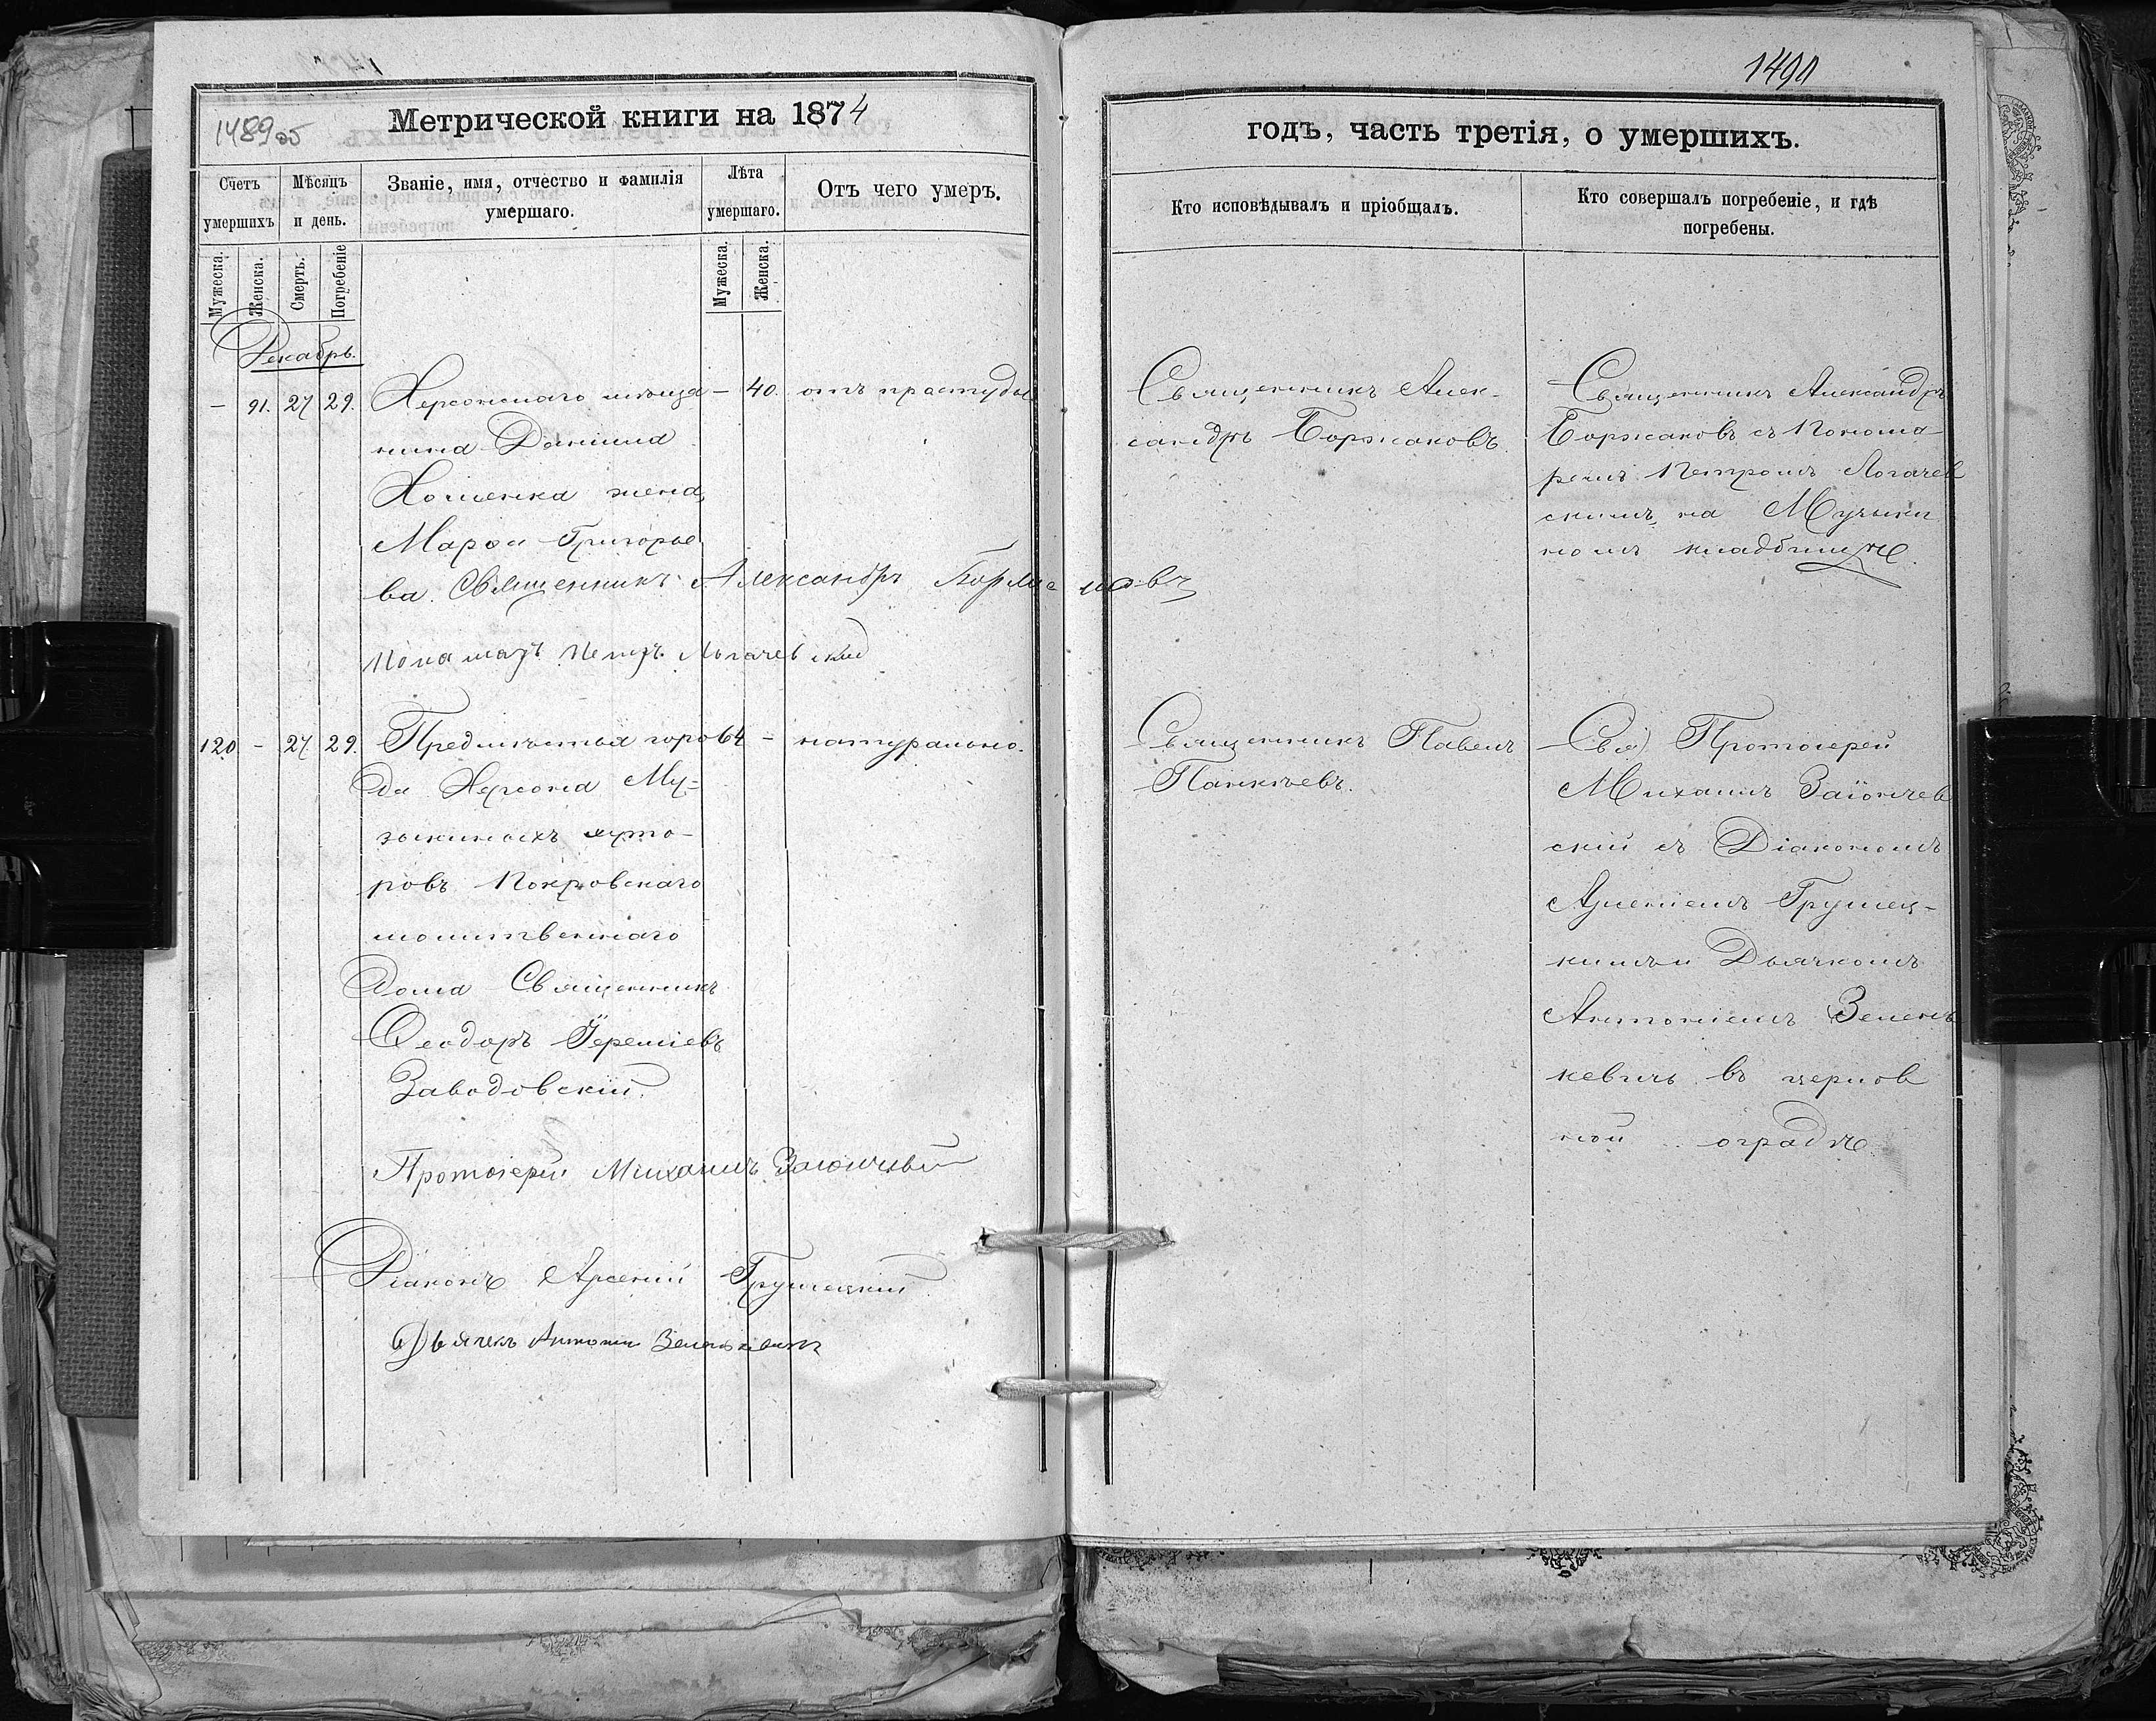 1489 об
Метрической книги на 1874
Счетъ умершихъ
Мѣсяцъ и день.
Званіе, имя, отчество и фамилія умершаго.
Лѣта умершаго.
Отъ чего умеръ.
Мужеска.
Женска.
Смерть.
Погребеніе
Мужеска.
Женска.
Декабрь.
– 91. 27 29. Херсонскаго мѣща – 40. отъ простуды
нина Даниила
жена
Григорье
ва. Священникъ Александръ
Петръ Логачевский
120 – 27 29. Предмѣстья горо 64 – натурально.
да Херсона Му-
зыкиныхъ хуто-
ровъ Покровскаго
молитвеннаго
дома Священникъ
Ѳеодоръ Іереміевъ
Заводовскій.
Протоіерей Михаилъ
Діаконъ Арсеній Грушецкій
Дьячекъ Антоній Зеленкевичъ
1490
годъ, часть третія, о умершихъ.
Кто исповѣдывалъ и пріобщалъ.
Кто совершалъ погребеніе, и гдѣ
погребены.
Священникъ Алек-
сандръ Боржаковъ.
Священникъ Александръ
Боржаковъ съ Понома
ремъ Петромъ Логачев
скимъ на Музыки
номъ кладбищѣ.
Священникъ Павелъ
Панкѣевъ.
Протоіерей
Михаилъ Заіончев
скій съ Діакономъ
Арсеніемъ Грушец-
кимъ и Дьячкомъ
Антоніемъ Зелен
кевичъ въ церков
ной оградѣ